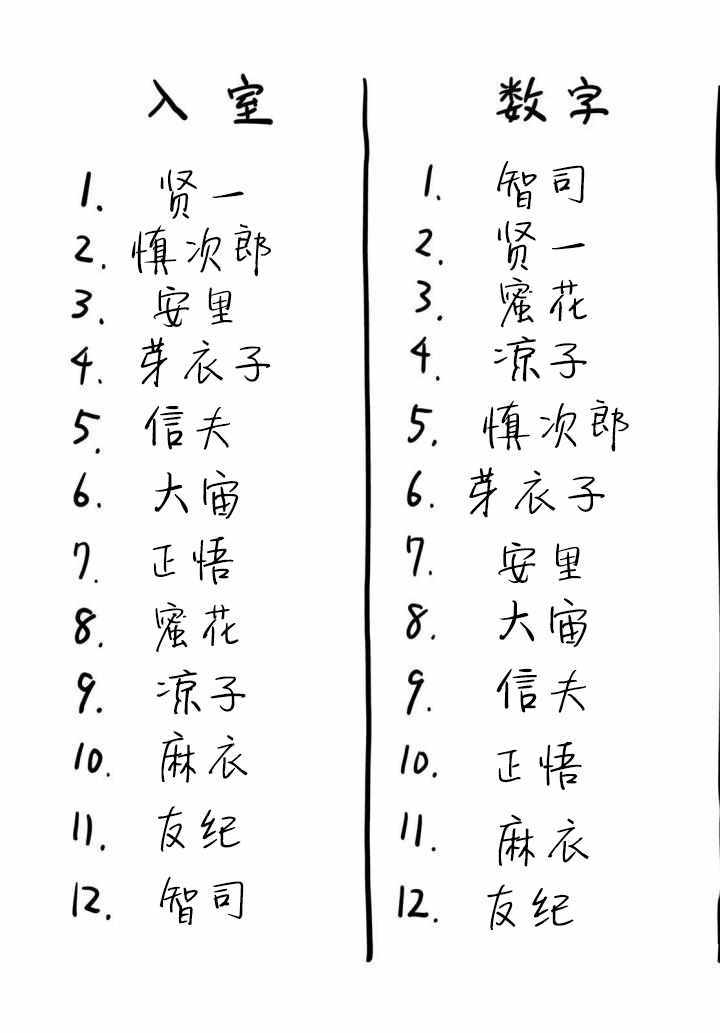 入室
1. 贤一
2. 慎次郎
3. 安里
4. 芽衣子
5. 信夫
6. 大宙
7. 正悟
8. 蜜花
9. 凉子
10. 麻衣
11. 友纪
12. 智司
数字
1. 智司
2. 贤一
3. 蜜花
4. 凉子
5. 慎次郎
6. 芽衣子
7. 安里
8. 大宙
9. 信夫
10. 正悟
11. 麻衣
12. 友纪